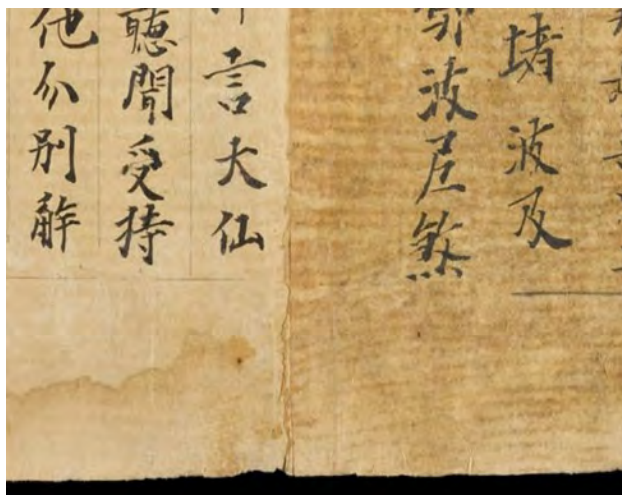 堵波及
鄔波尼煞
言大仙
聽聞受持
他分別解